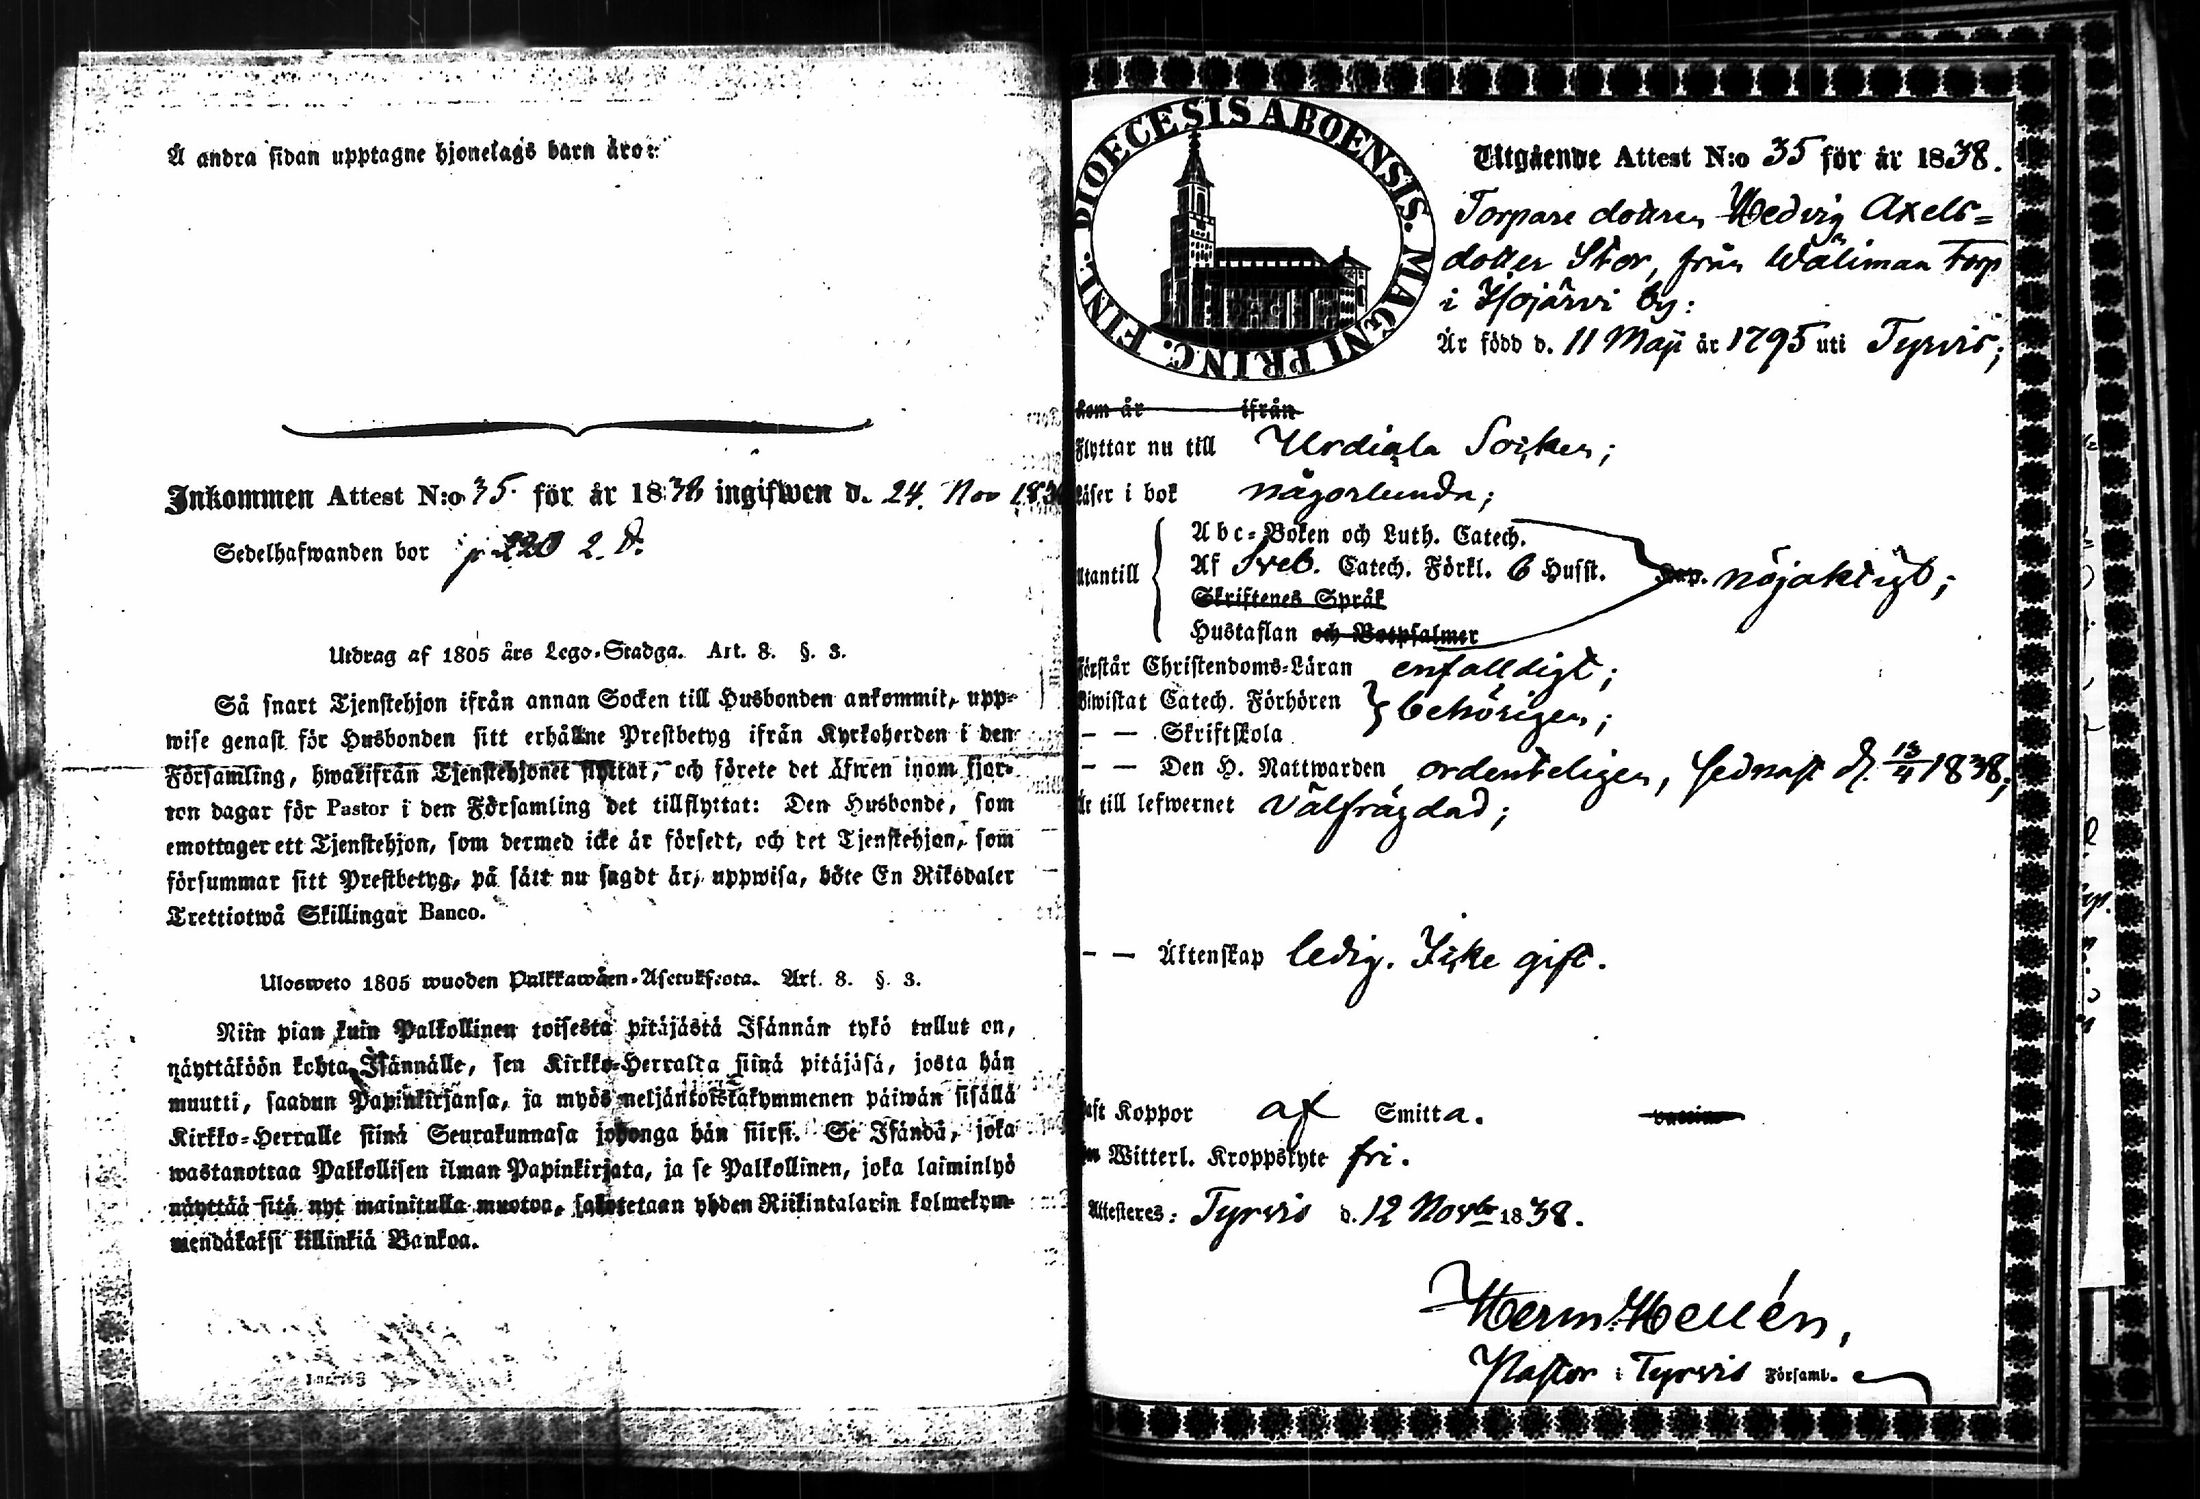 Å andra sidan upptagne hjonelags barn äro:
Inkommen Attest N:o 35. för år 1838 ingifwen d. 24. Nov 183
Sedelhafwanden bor p 220 2. d.
Utdrag af 1805 års Lego-Stadga. Art. 8. §. 3.
Så snart Tjenstehjon ifrån annan Socken till Husbonden ankommit, upp-
wise genast för Husbonden sitt erhållne Prestbetyg ifrån Kyrkoherden i den
Församling, hwarifrån Tjenstehjonet flyttat, och förete det äfwen inom fjor-
ton dagar för Pastor i den Församling det tillflyttat: Den Husbonde, som
emottager ett Tjenstehjon, som dermed icke är försedt, och det Tjenstehjon, som
försummar sitt Prestbetyg, på sätt nu sagdt är, uppwisa, böte En Riksdaler
Trettiotwå Skillingar Banco.
Ulosweto 1805 wuoden Palkkawäen-Asetuksesta. Art. 8. §. 3.
Niin pian kuin Palkollinen toisesta pitäjästä Isännän tykö tullut on,
näyttäköön kohta Isännälle, sen Kirkko-Herralta siinä pitäjäsä, josta hän
muutti, saadun Papinkirjansa, ja myös neljäntoistakymmenen päiwän sisällä
Kirkko-Herralle siinä Seurakunnasa johonga hän siirsi. Se Isändä, joka
wastanottaa Palkollisen ilman Papinkirjata, ja se Palkollinen, joka laiminlyö
näyttää sitä nyt mainitulla muotoa, sakotetaan yhden Riikintalarin kolmekym-
mendäkaksi killinkiä Bankoa.
DIOECESIS ABOENSIS. MAGNI PRINC. FINL.
Utgående Attest N:o 35 för år 1838.
Torpare dottren Hedvig Axels=
dotter Stor, från Wälimaa Torp
i Isojärvi by:
Är född d. 11 Maji år 1795 uti Tyrvis;
Kom år ifrån
Flyttar nu till Urdiala Socken;
Läser i bok någorlunda;
Abc-Boken och Luth. Catech.
Utantill Af Sveb. Catech. Förkl. 6 Husst. nöjaktigt;
Skriftenes Språk
Hustaflan och Botpsalmer
Förstår Christendoms-Läran enfalldigt;
Biwistat Catech. Förhören behörigen;
— — Skriftskola
— — Den H. Nattwarden ordenteligen, sednast d. 13/4 1838;
Är till lefwernet välfrägdad;
— — Äktenskap ledig. Icke gift.
Haft Koppor af Smitta. vaccin
Witterl. Kroppslyte fri.
Attesteres: Tyrvis d. 12 Novbr 1838.
Herm: Hellén,
Pastor i Tyrvis Församl.